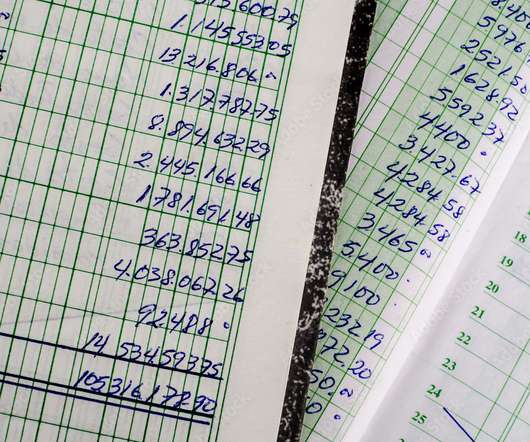 1.145553.05
13216.806.00
1.317.787.75
8.894.632.29
2.445.166.66
1781.691.48
363.852.75
4.038.062.26
92488.0
14 534593.75
105316.178.90
5976
2521.50
1628.92
5592.37
4400.
3427.67
4284.58
4284.58
3465.00
5400.
9100.
232.19
372.20
50.00
0.
18
19
20
21
22
23
24
25